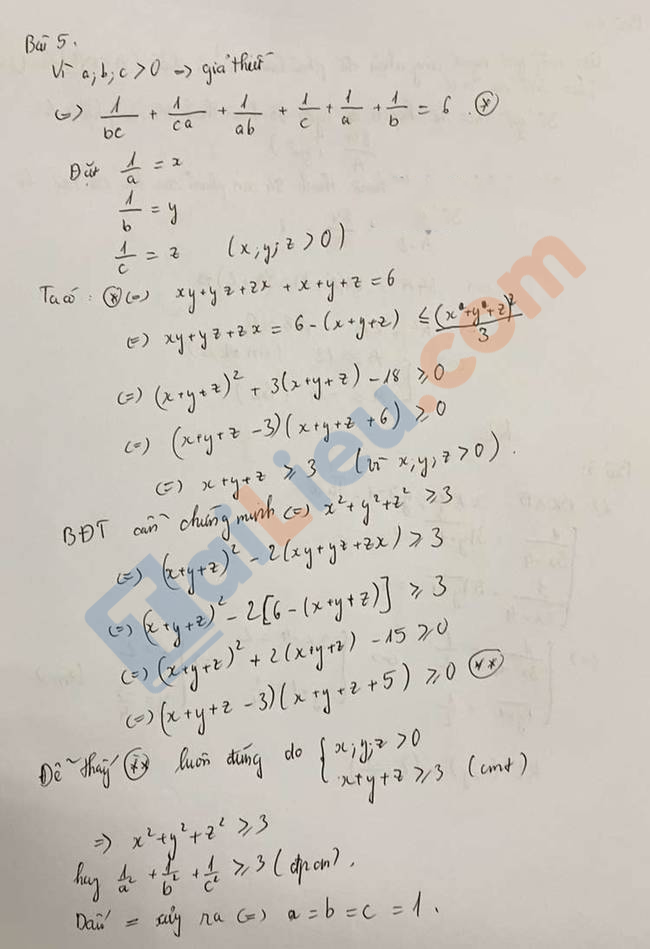 Bài 5.
Vì a; b; c > 0 → giả thiết
(=) 1/bc + 1/ca + 1/ab + 1/c + 1/a + 1/b = 6. (*)
Đặt 1/a = x
1/b = y
1/c = z (x; y; z > 0)
Ta có: (*) (=) xy + yz + zx + x + y + z = 6
(=) xy + yz + zx = 6 - (x+y+z) ≤ (x+y+z)²/3
(=) (x+y+z)² + 3(x+y+z) - 18 ≥ 0
(=) (x+y+z - 3)(x+y+z + 6) ≥ 0
(=) x+y+z ≥ 3 (vì x; y; z > 0).
BĐT cần chứng minh (=) x² + y² + z² ≥ 3
(=) (x+y+z)² - 2(xy + yz + zx) ≥ 3
(=) (x+y+z)² - 2[6 - (x+y+z)] ≥ 3
(=) (x+y+z)² + 2(x+y+z) - 15 ≥ 0
(=) (x+y+z - 3)(x+y+z + 5) ≥ 0 (**)
Dễ thấy (**) luôn đúng do { x; y; z > 0
x+y+z ≥ 3 (cmt)
=> x² + y² + z² ≥ 3
hay 1/a² + 1/b² + 1/c² ≥ 3 (đpcm).
Dấu = xảy ra (=) a = b = c = 1.
TaiLieu.com